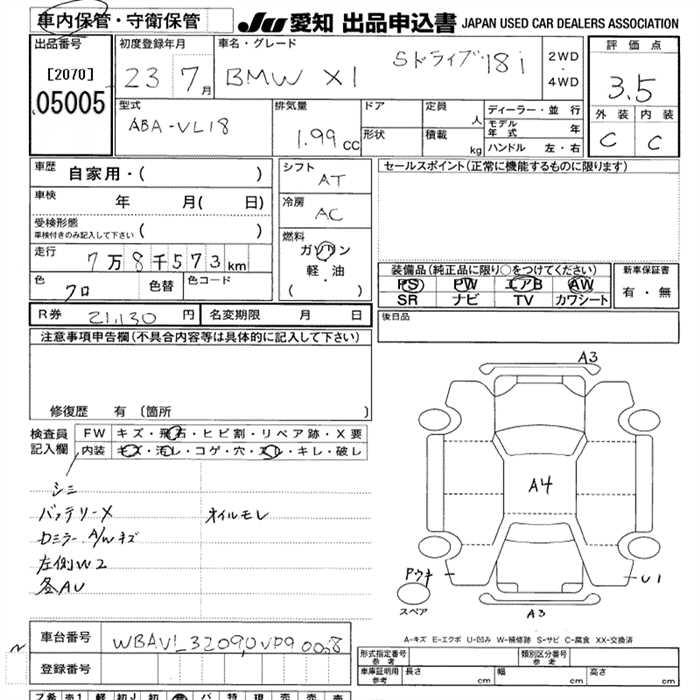 車内保管・守衛保管
JU 愛知 出品申込書 JAPAN USED CAR DEALERS ASSOCIATION
出品番号
[2070]
05005
初度登録年月
23 7月
車名・グレード
BMW X1 Sドライブ 18i
2WD
・
4WD
評価点
3.5
外装 内装
C C
型式
ABA-VL18
排気量
1.99 cc
ドア
形状
定員
人
積載
kg
ディーラー・並行
モデル年式 年
ハンドル 左・右
車歴
自家用・( )
車検
年 月( 日)
受検形態
車検付きのみ記入して下さい ( )
走行
7万8千573km
色
クロ
色替
色コード
シフト
AT
冷房
AC
燃料
ガソリン
軽・油
( ・ )
セールスポイント(正常に機能するものに限ります)
装備品(純正品に限り○をつけてください)
PS PW エアB AW
SR ナビ TV カワシート
新車保証書
有・無
R券 21,130 円
名変期限 月 日
後日品
注意事項申告欄(不具合内容等は具体的に記入して下さい)
修復歴 有 〔箇所 〕
検査員
記入欄
FW キズ・飛石・ヒビ割・リペア跡・X要
内装 キズ・汚レ・コゲ・穴・スレ・キレ・破レ
シミ
バッテリーX オイルモレ
Dミラー A/Wキズ
左側W2
各AU
A3
A4
Pウキ
U1
スペア
A3
A-キズ E-エクボ U-凹み W-補修跡 S-サビ C-腐食 XX-交換済
車台番号
WBAVL32090VP90008
登録番号
形式指定番号
参考
類別区分番号
参考
車庫証明用
参考
長さ cm 幅 cm 高さ cm